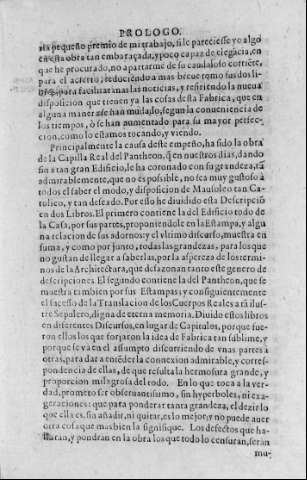 PROLOGO.
ria pequeño premio de mi trabajo, si le pareciesse ve algo
en esta obra tan embaraçada, y poco capaz de elegácia, en
que he procurado, no apartarme de su caudaloso corriẽte,
para el acierto; reduciendo a mas breue tomo sus dos li-
bros, para facilitar mas las noticias, y refiriendo la nueua
disposicion que tienen ya las cosas desta Fabrica, que en
alguna manera se han mudado, segun la conueniencia de
los tiempos, ò se han aumentado para su mayor perfec-
cion, como lo estamos tocando, y viendo.
Principalmente la causa deste empeño, ha sido la obra
de la Capilla Real del Pantheon, q̃ en nuestros dias, dando
fin a tan gran Edificio, le ha coronado con su grandeza, tã
admirablemente, que no es posible, no sea muy gustoso à
todos el saber el modo, y disposicion de Mausoleo tan Ca-
tolico, y tan deseado. Por esso he diuidido esta Descripciõ
en dos Libros. El primero contiene la del Edificio todo de
la Casa, por sus partes, proponiendole en la Estampa, y algu
na relacion de sus adornos: y el vltimo discurso, muestra en
suma, y como por junto, todas las grandezas, para los que
no gustan de llegar a saberlas, por la aspereza de los termi-
nos de la Architectura, que desazonan tanto este genero de
descripciones. El segundo contiene la del Pantheon, que se
muestra tambien por sus Estampas; y consiguientemente
el sucesso de la Translacion de los Cuerpos Reales a tã ilus-
tre Sepulcro, digna de eterna memoria. Diuido estos libros
en diferentes Discursos, en lugar de Capitulos, porque fue-
ron ellos los que forjaron la idea de Fabrica tan sublime, y
porque se vaya en el assumpto discurriendo de vnas partes à
otras, para dar a entẽder la connexion admirable, y corres-
pondencia de ellas, de que resulta la hermosura grande, y
proporcion milagrosa del todo. En lo que toca a la ver-
dad, prometo ser obseruantissimo, sin hyperboles, ni exa-
geraciones: que para ponderar tanta grandeza, el dezir lo
que ella es, sin añadir, ni quitar, es lo mejor, y no puede auer
otra cosa que mas bien la signifique. Los defectos que ha-
llaran, y pondran en la obra los que todo lo censuran, seran
mu-